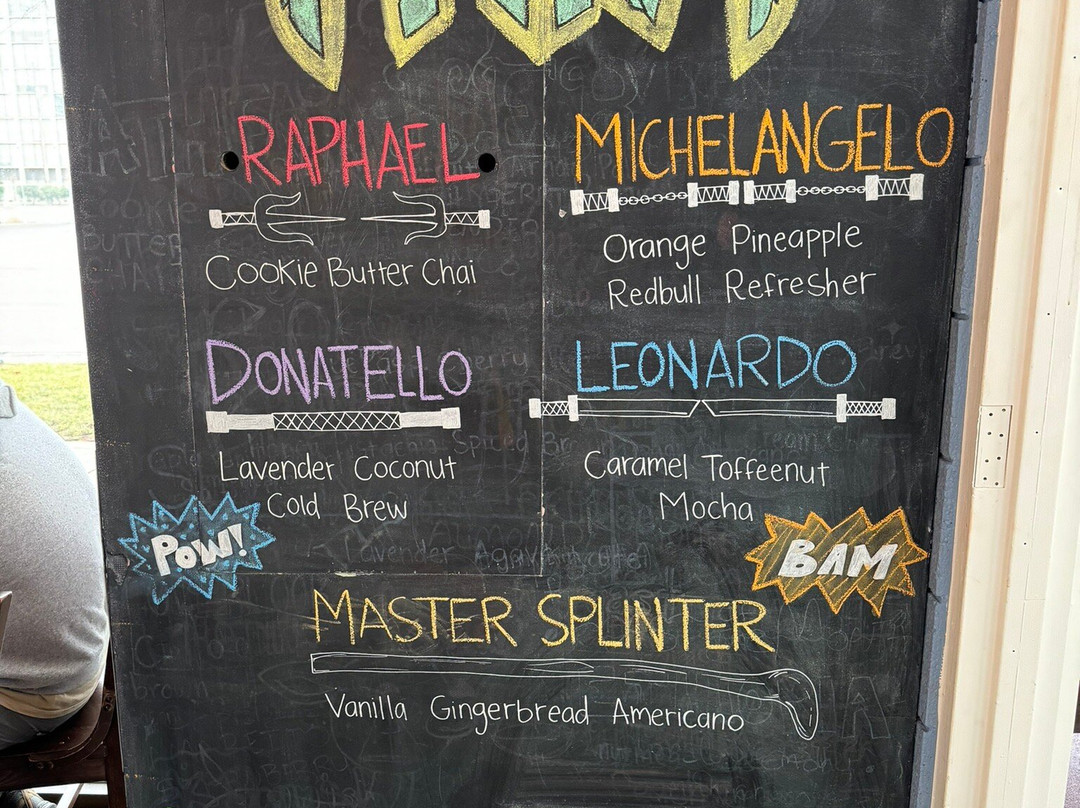 RAPHAEL
Cookie Butter Chai
MICHELANGELO
Orange Pineapple
Redbull Refresher
DONATELLO
Lavender Coconut
Cold Brew
LEONARDO
Caramel Toffeenut
Mocha
POW!
BAM
MASTER SPLINTER
Vanilla Gingerbread Americano